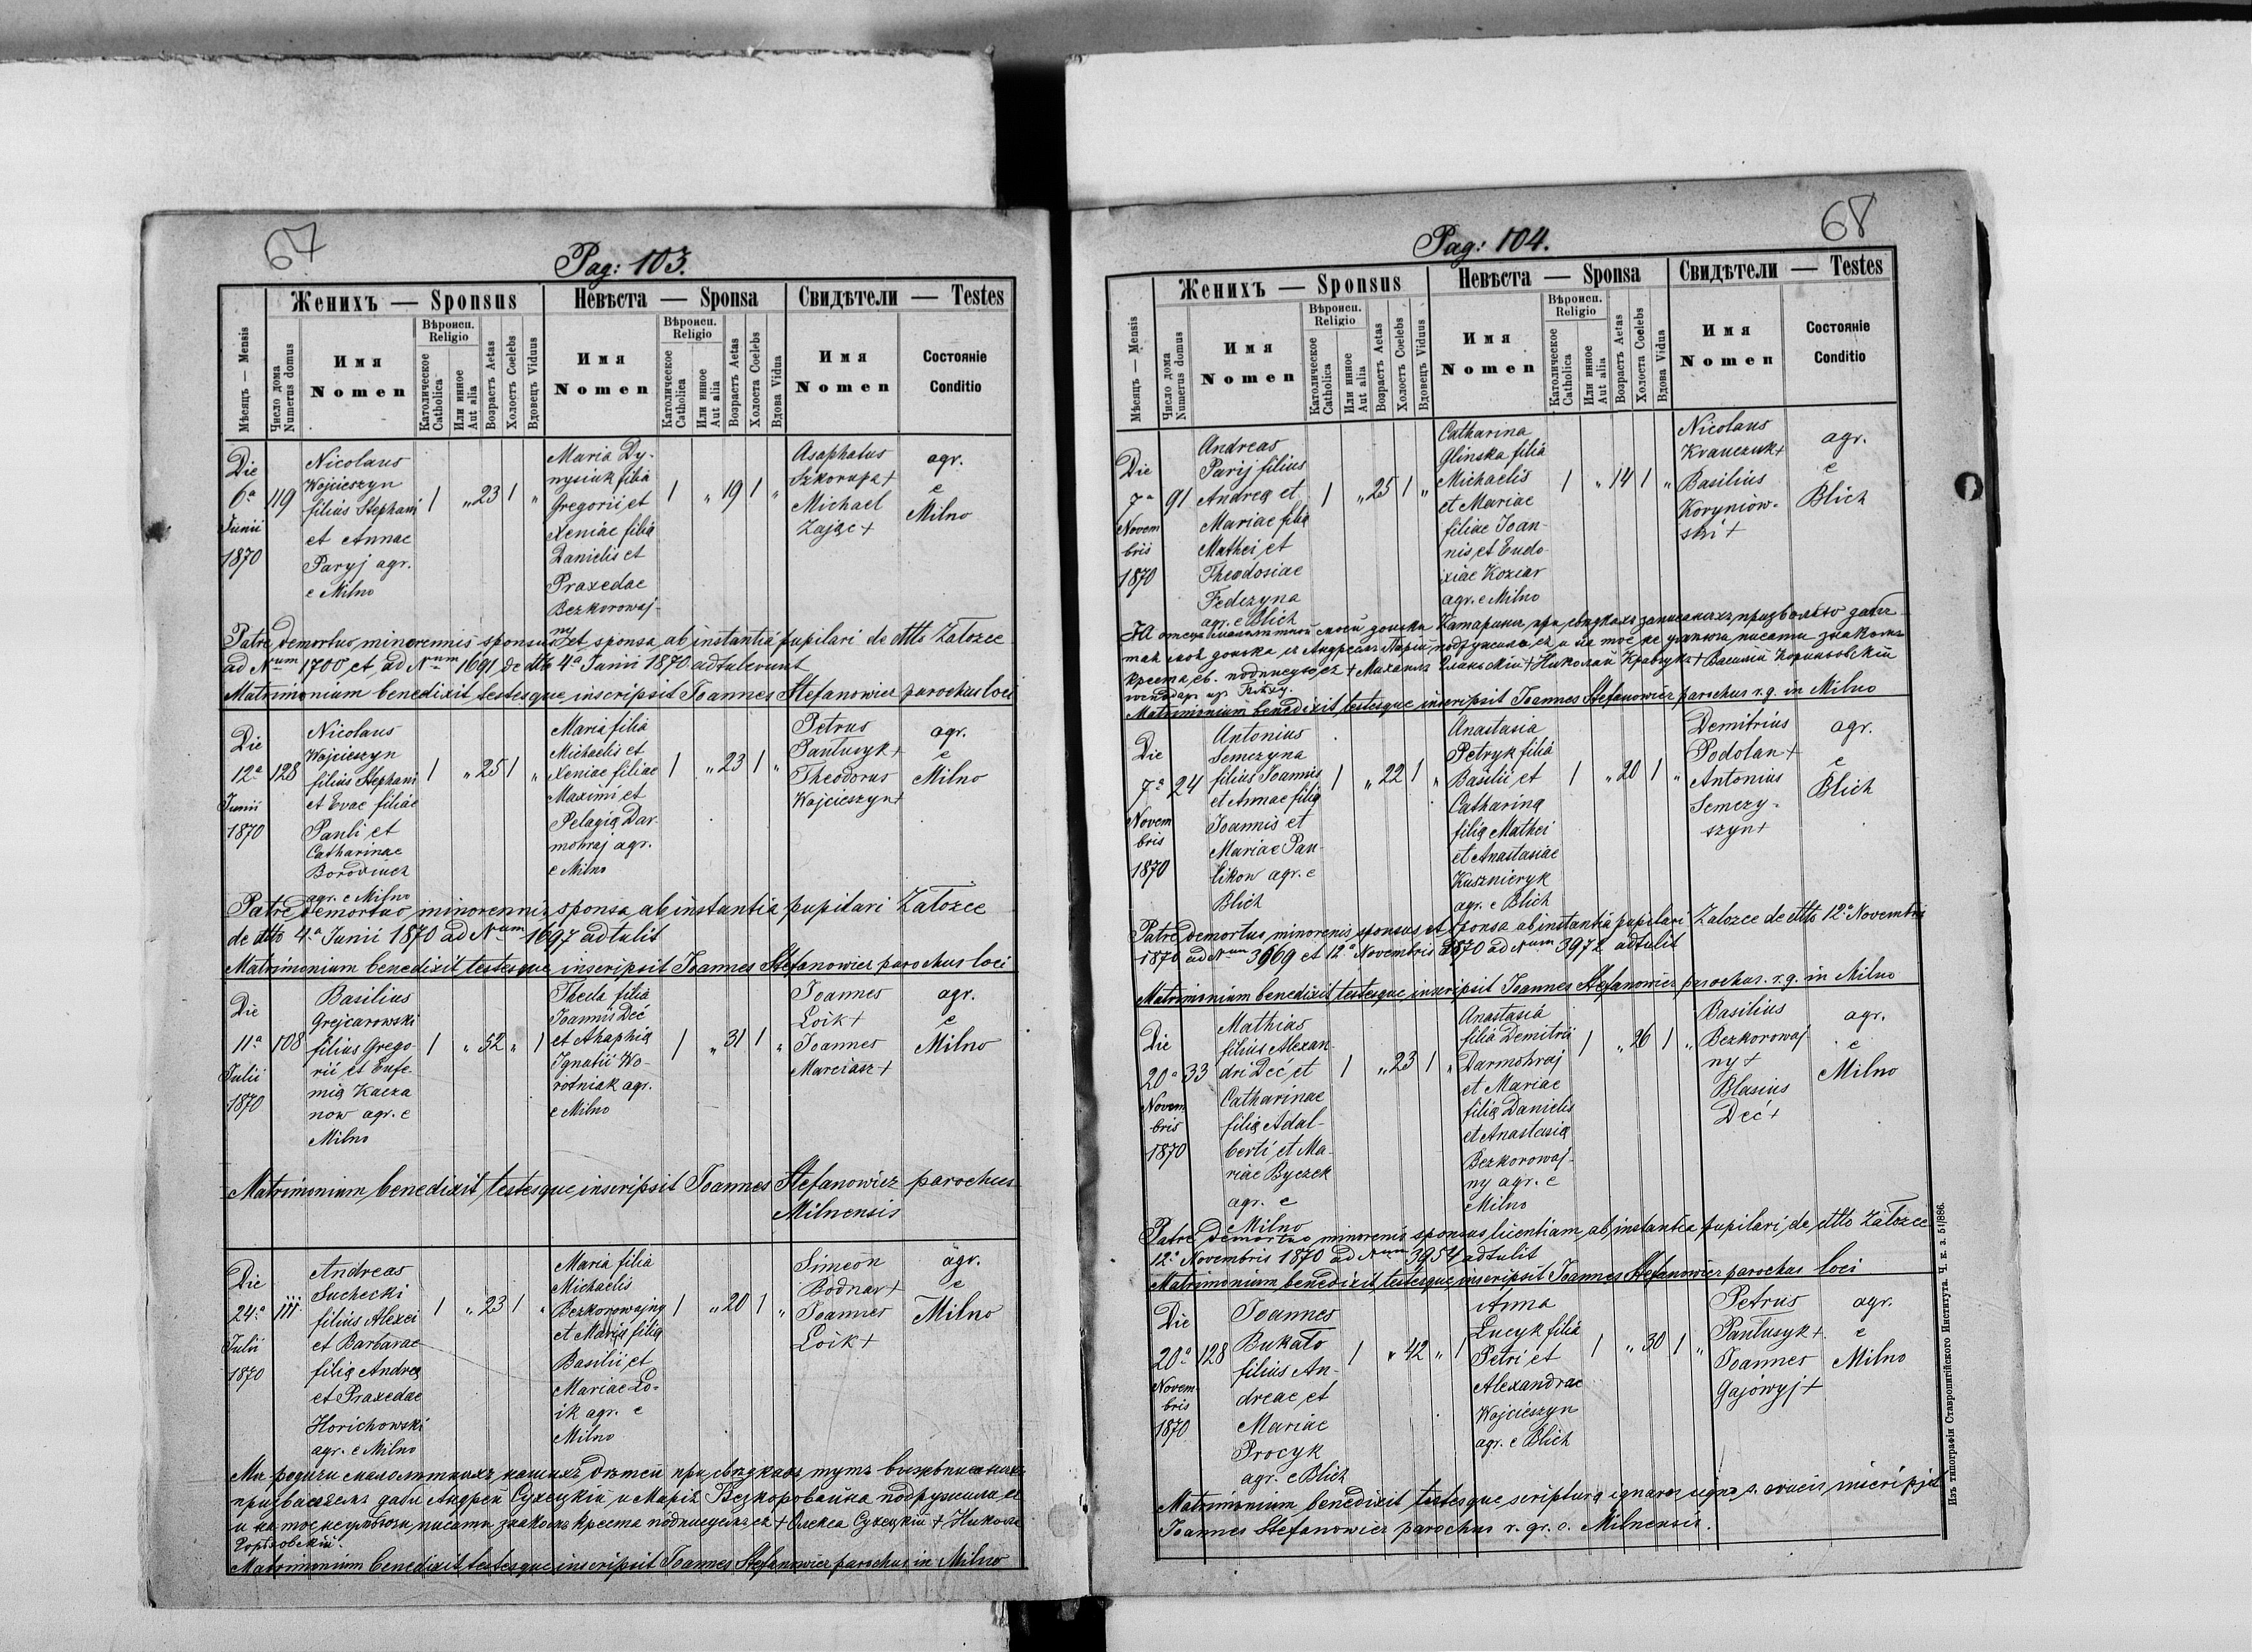 67
Pag: 103.
Женихъ — Sponsus
Невѣста — Sponsa
Свидѣтели — Testes
Мѣсяцъ — Mensis
Число дома
Numerus domus
Имя
Nomen
Вѣроисп.
Religio
Католическое
Catholica
Или инное
Aut alia
Возрастъ Aetas
Холость Coelebs
Вдовецъ Viduus
Имя
Nomen
Вѣроисп.
Religio
Католическое
Catholica
Или инное
Aut alia
Возрастъ Aetas
Холоста Coelebs
Вдова Vidua
Имя
Nomen
Состояніе
Conditio
Die
6a
Junii
1870
119
Nicolaus
Wojcieszyn
filius Stephani
et Annae
Paryj agr.
e Milno
1 " 23 1 "
Maria Dy-
nysiuk filia
Gregorii et
Xeniae filia
Danielis et
Praxedae
Bezkorowaj-
ny
1 " 19 1 "
Asaphatus
Szkorupa +
Michael
Zając +
agr.
e
Milno
Patre demortuo minorennis sponsus et sponsa ab instantia pupilari de dtto Załozce
ad Num 1700 et ad Num 1691 de dtto 4a Junii 1870 adtulerunt
Matrimonium benedixit testesque inscripsit Joannes Stefanowicz parochus loci
Die
12a
Junii
1870
128
Nicolaus
Wojcieszyn
filius Stephani
et Evae filiae
Pauli et
Catharinae
Borodiucz
agr. e Milno
1 " 25 1 "
Maria filia
Michaelis et
Xeniae filiae
Maximi et
Pelagia Dar-
mohraj agr.
e Milno
1 " 23 1 "
Petrus
Pantusyk +
Theodorus
Wojcieszyn +
agr.
e
Milno
Patre demortuo minorennis sponsa ab instantia pupilari Załozce
de dtto 4.a Junii 1870 ad Num 1697 adtulit
Matrimonium benedixit testesque inscripsit Joannes Stefanowicz parochus loci
Die
11a
Julii
1870
108
Basilius
Grejcarowski
filius Grego-
rii et Eufe-
mia Kacza
now agr. e
Milno
1 " 52 " 1
Thecla filia
Joannis Deć
et Ahaphia
Ignatii Wo-
rotniak agr.
e Milno
1 " 31 1 "
Joannes
Loik +
Joannes
Marciasz +
agr.
e
Milno
Matrimonium benedixit, testesque inscripsit Joannes Stefanowicz parochus
Milnensis
Die
24.a
Julii
1870
111
Andreas
Suchecki
filius Alexei
et Barbarae
filia Andrea
et Praxedae
Horichowski
agr. e Milno
1 " 23 1 "
Maria filia
Michaelis
Bezkorowajny
et Maria filia
Basilii et
Mariae Lo-
ik agr. e
Milno
1 " 20 1 "
Simeon
Bodnar +
Joannes
Loik +
agr.
e
Milno
Мы родичи малолѣтныхъ нашихъ дѣтей при свѣдкахъ тутъ
дабы Андрей Сухецкій и Марія Безкоровайна
и на тое не писати знакомъ креста + Олекса Сухецкій +
Matrimonium benedixit testesque inscripsit Joannes Stefanowicz parochus in Milno
68
Pag: 104.
Женихъ — Sponsus
Невѣста — Sponsa
Свидѣтели — Testes
Мѣсяцъ — Mensis
Число дома
Numerus domus
Имя
Nomen
Вѣроисп.
Religio
Католическое
Catholica
Или инное
Aut alia
Возрастъ Aetas
Холость Coelebs
Вдовецъ Viduus
Имя
Nomen
Вѣроисп.
Religio
Католическое
Catholica
Или инное
Aut alia
Возрастъ Aetas
Холоста Coelebs
Вдова Vidua
Имя
Nomen
Состояніе
Conditio
Die
7a
Novem
bris
1870
91
Andreas
Parij filius
Andrea et
Mariae filia
Mathei et
Theodosiae
Fedczyna
agr. e Blich
1 " 25 1 "
Catharina
Glinska filia
Michaelis
et Mariae
filiae Joan-
nis et Eudo-
xiae Koziar
agr. e Milno
1 " 14 1 "
Nicolaus
Krawczuk +
Basilius
Koryniow-
ski +
agr.
e
Blich
Я отецъ моей доньки Катарины при свѣдкахъ
донька съ Андреемъ Парій и на тое не писати знакомъ
креста св. + Михаилъ + Николай Кравчукъ + Василій
Matrimonium benedixit, testesque inscripsit Joannes Stefanowicz parochus r. g. in Milno
Die
7a
Novem
bris
1870
24
Antonius
Semczyna
filius Joannis
et Annae filia
Joannis et
Mariae Pau-
likow agr. e
Blich
1 " 22 1 "
Anastasia
Petryk filia
Basilii et
Catharina
filia Mathei
et Anastasiae
Kusznieryk
agr. e Blich
1 " 20 1 "
Demitrius
Podolan +
Antonius
Semczy-
szyn +
agr.
e
Blich
Patre demortuo minorenis sponsus et sponsa ab instantia pupilari Załozce de dtto 12.a Novembris
1870 ad Num 3969 et 12.a Novembris 1870 ad Num 3972 adtulit
Matrimonium benedixit, testesque inscripsit Joannes Stefanowicz parochus. r. g. in Milno
Die
20a
Novem
bris
1870
33
Mathias
filius Alexan-
dri Dec et
Catharinae
filia Adal-
berti et Ma-
riae Byczek
agr. e
Milno
1 " 23 1 "
Anastasia
filia Demitrii
Darmohraj
et Mariae
filia Danielis
et Anastasia
Bezkorowaj-
ny agr. e
Milno
1 " 26 1 "
Basilius
Bezkorowaj-
ny +
Blasius
Deć +
agr.
e
Milno
Patre demortuo minorenis sponsus licentiam ab instantia pupilari, de dtto Załozce
12.a Novembris 1870 ad Num 3954 adtulit
Matrimonium benedixit testesque inscripsit Joannes Stefanowicz parochus loci
Die
20a
Novem-
bris
1870
128
Joannes
Bukało
filius An-
dreae et
Mariae
Procyk
agr. e Blich
1 " 42 " 1
Anna
Lucyk filia
Petri et
Alexandrae
Wojcieszyn
agr. e Blich
1 " 30 1 "
Petrus
Pantusyk +
Joannes
Gajowyj +
agr.
e
Milno
Matrimonium benedixit testesque scriptura ignaros signo s. crucis inscripsit
Joannes Stefanowicz parochus r. gr. c. Milnensis.
Изъ типографіи Ставропигійского Института. Ч. к. з. 51/886.